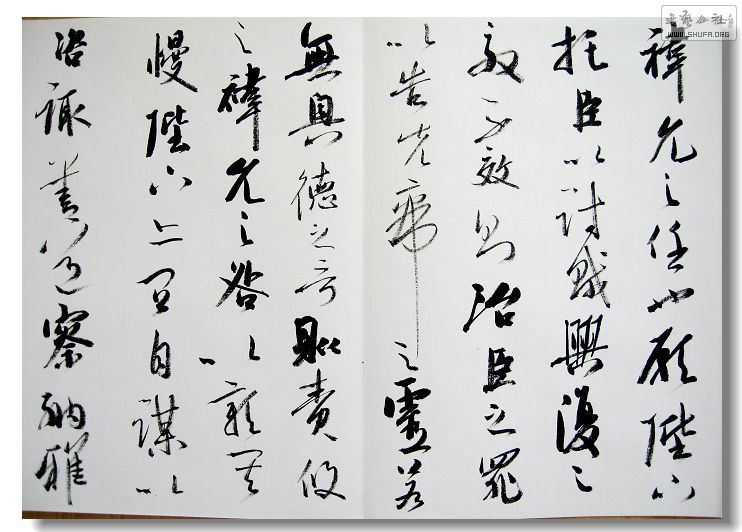 禕允之任也願陛下
托臣以討賊興復之
效不效則治臣之罪
以告先帝之靈若
無興德之言則責攸
之禕允之咎以彰其
慢陛下亦宜自謀以
咨諏善道察納雅
书艺公社
WWW.SHUFA.ORG